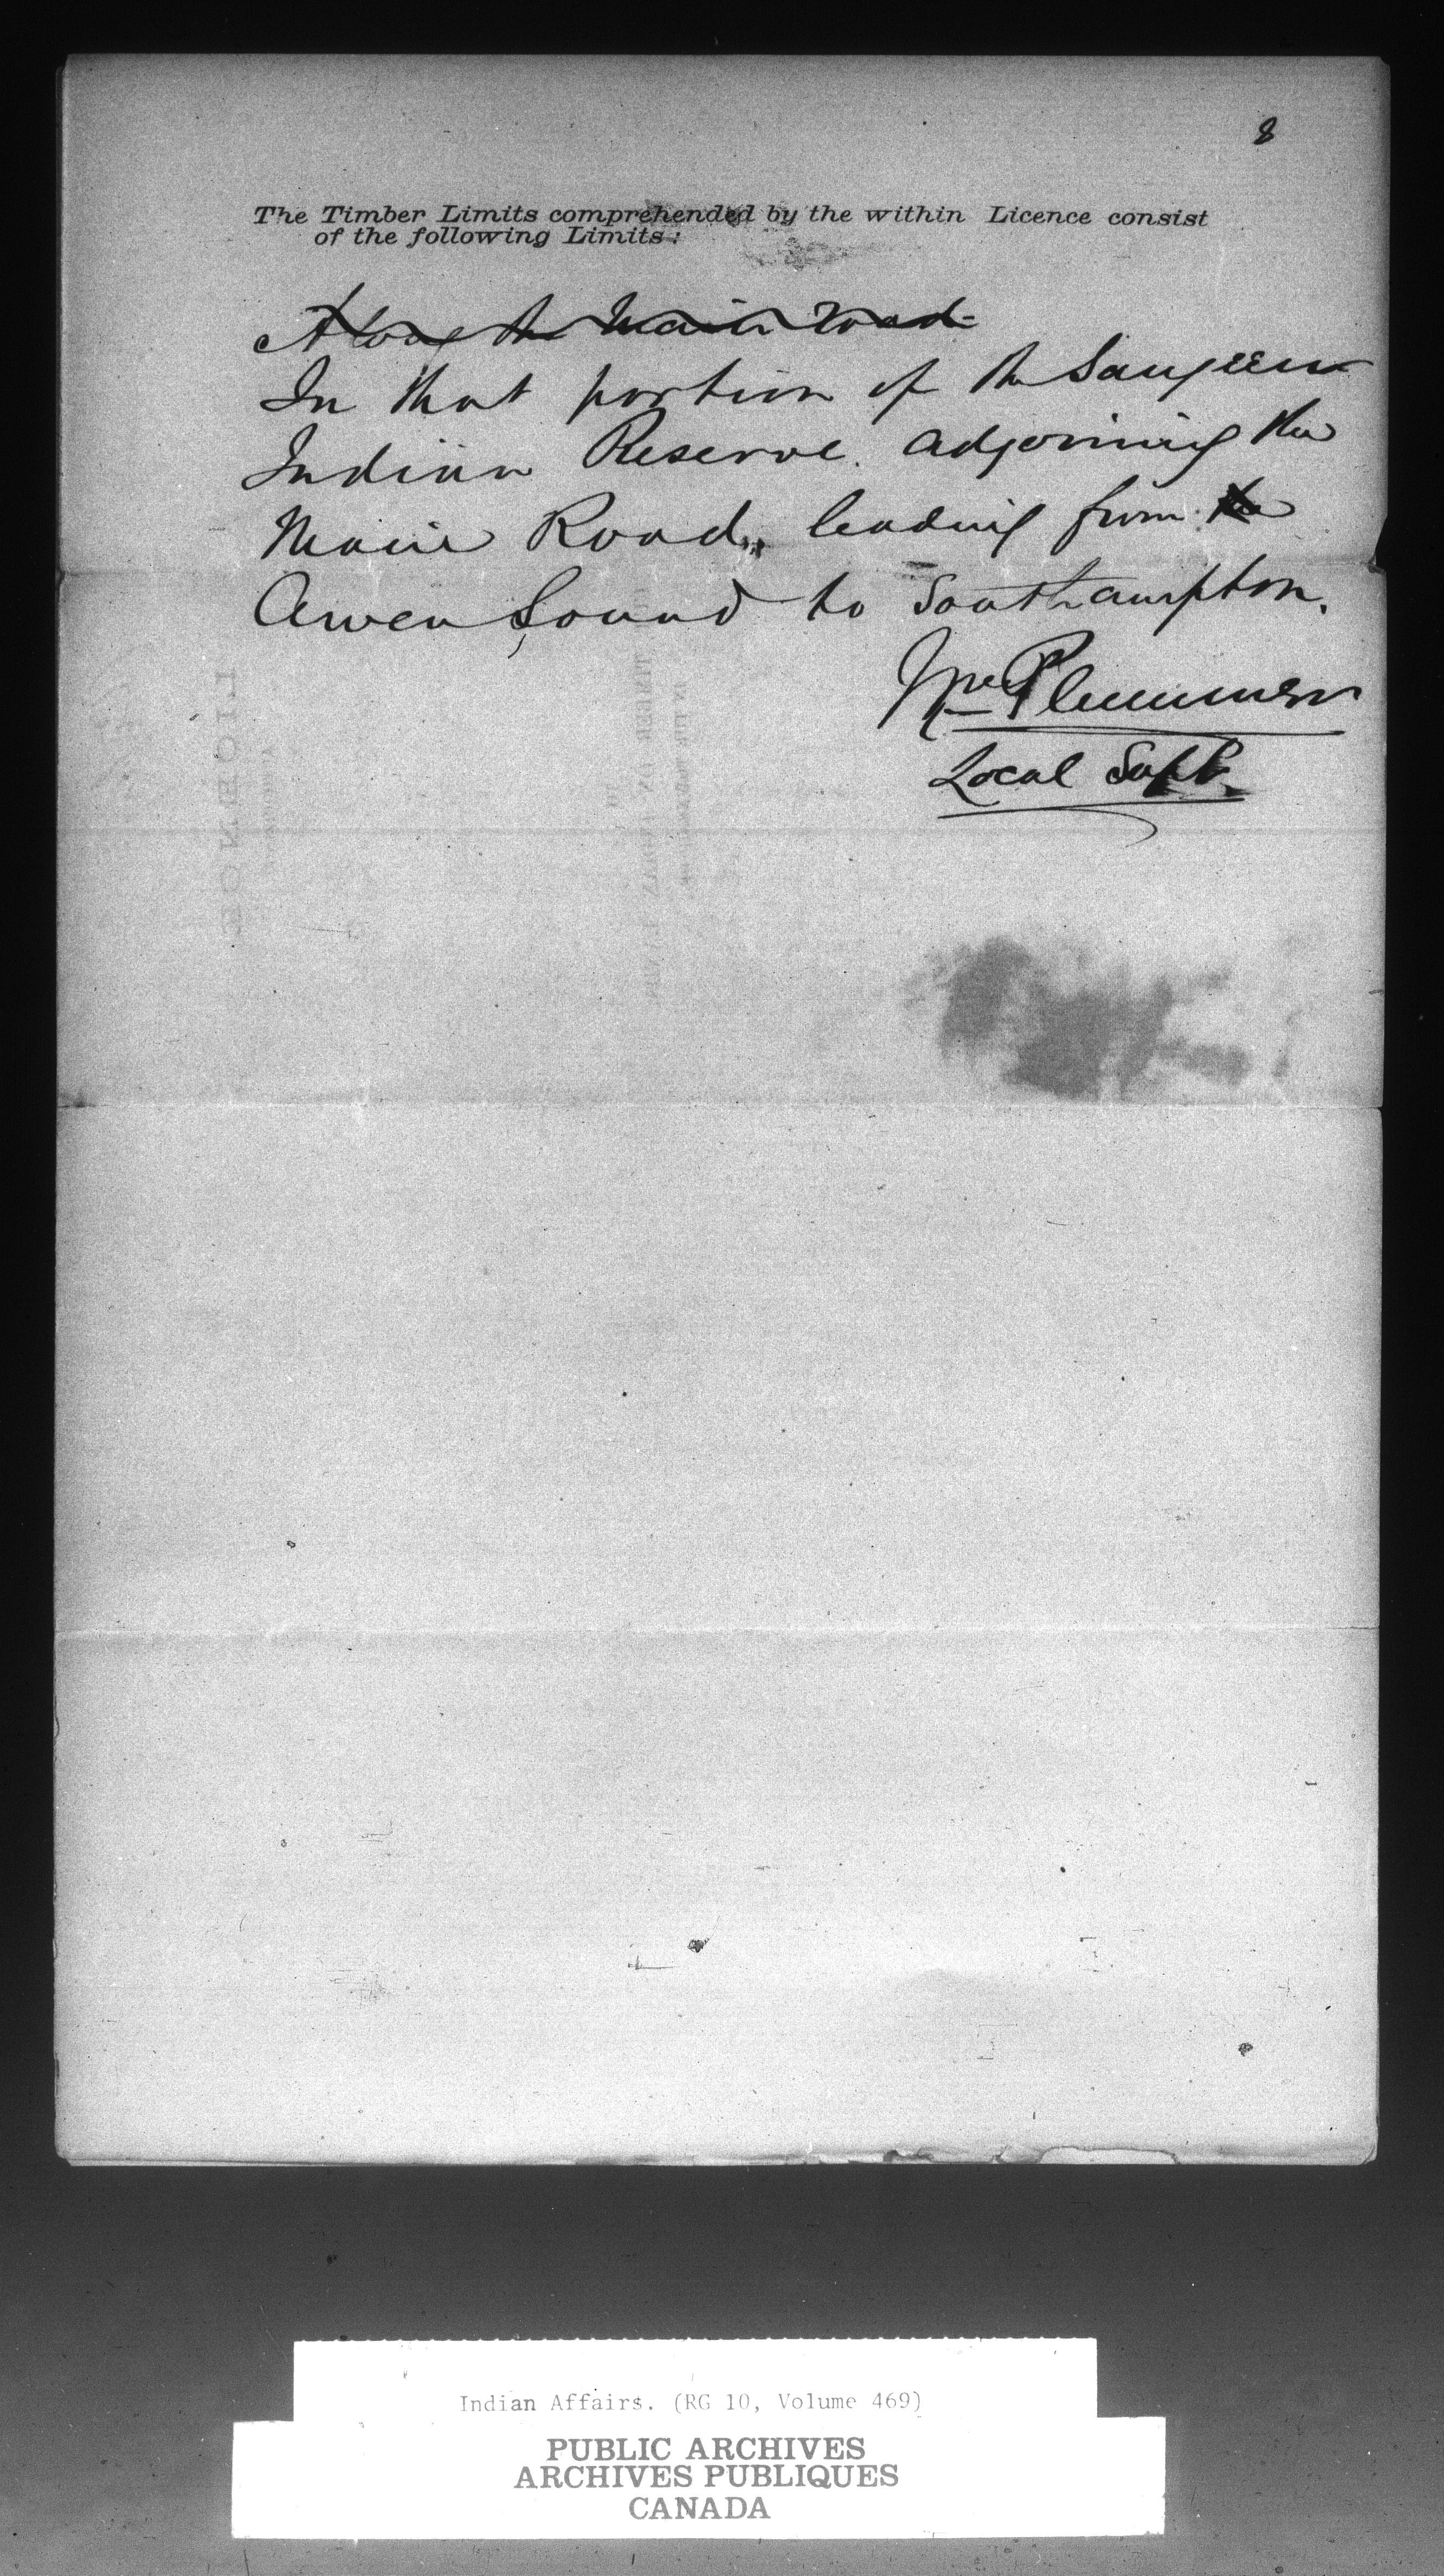 8
The Timber Limits comprehended by the within Licence consist
of the following Limits:
Along the Main Road
In that portion of the Saugeen
Indian Reserve. adjoining the
Main Road, leading from the
Owen Sound to Southampton.
Wm Plummer
Local Supt.
Indian Affairs. (RG 10, Volume 469)
PUBLIC ARCHIVES
ARCHIVES PUBLIQUES
CANADA